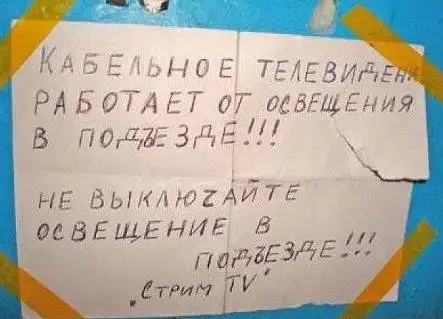 КАБЕЛЬНОЕ ТЕЛЕВИДЕНИ
РАБОТАЕТ ОТ ОСВЕЩЕНИЯ
В ПОДЪЕЗДЕ!!!
НЕ ВЫКЛЮЧАЙТЕ
ОСВЕЩЕНИЕ В
ПОДЪЕЗДЕ!!!
„СТРИМ TV“